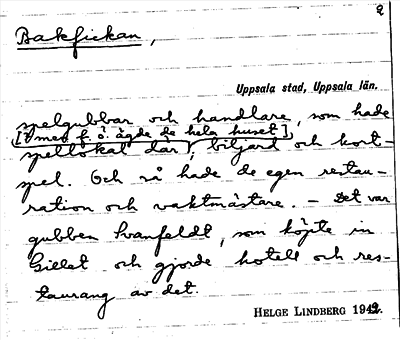 2
Bakfickan,
Uppsala stad, Uppsala län.
spelgubbar och handlare, som hade
[? men f. ö. ägde de hela huset]
spellokal där; biljard och kort-
spel. Och så hade de egen restau-
ration och vaktmästare. – Det var
gubben Svanfeldt, som köpte in
Gillet och gjorde hotell och res-
taurang av det.
HELGE LINDBERG 1942.